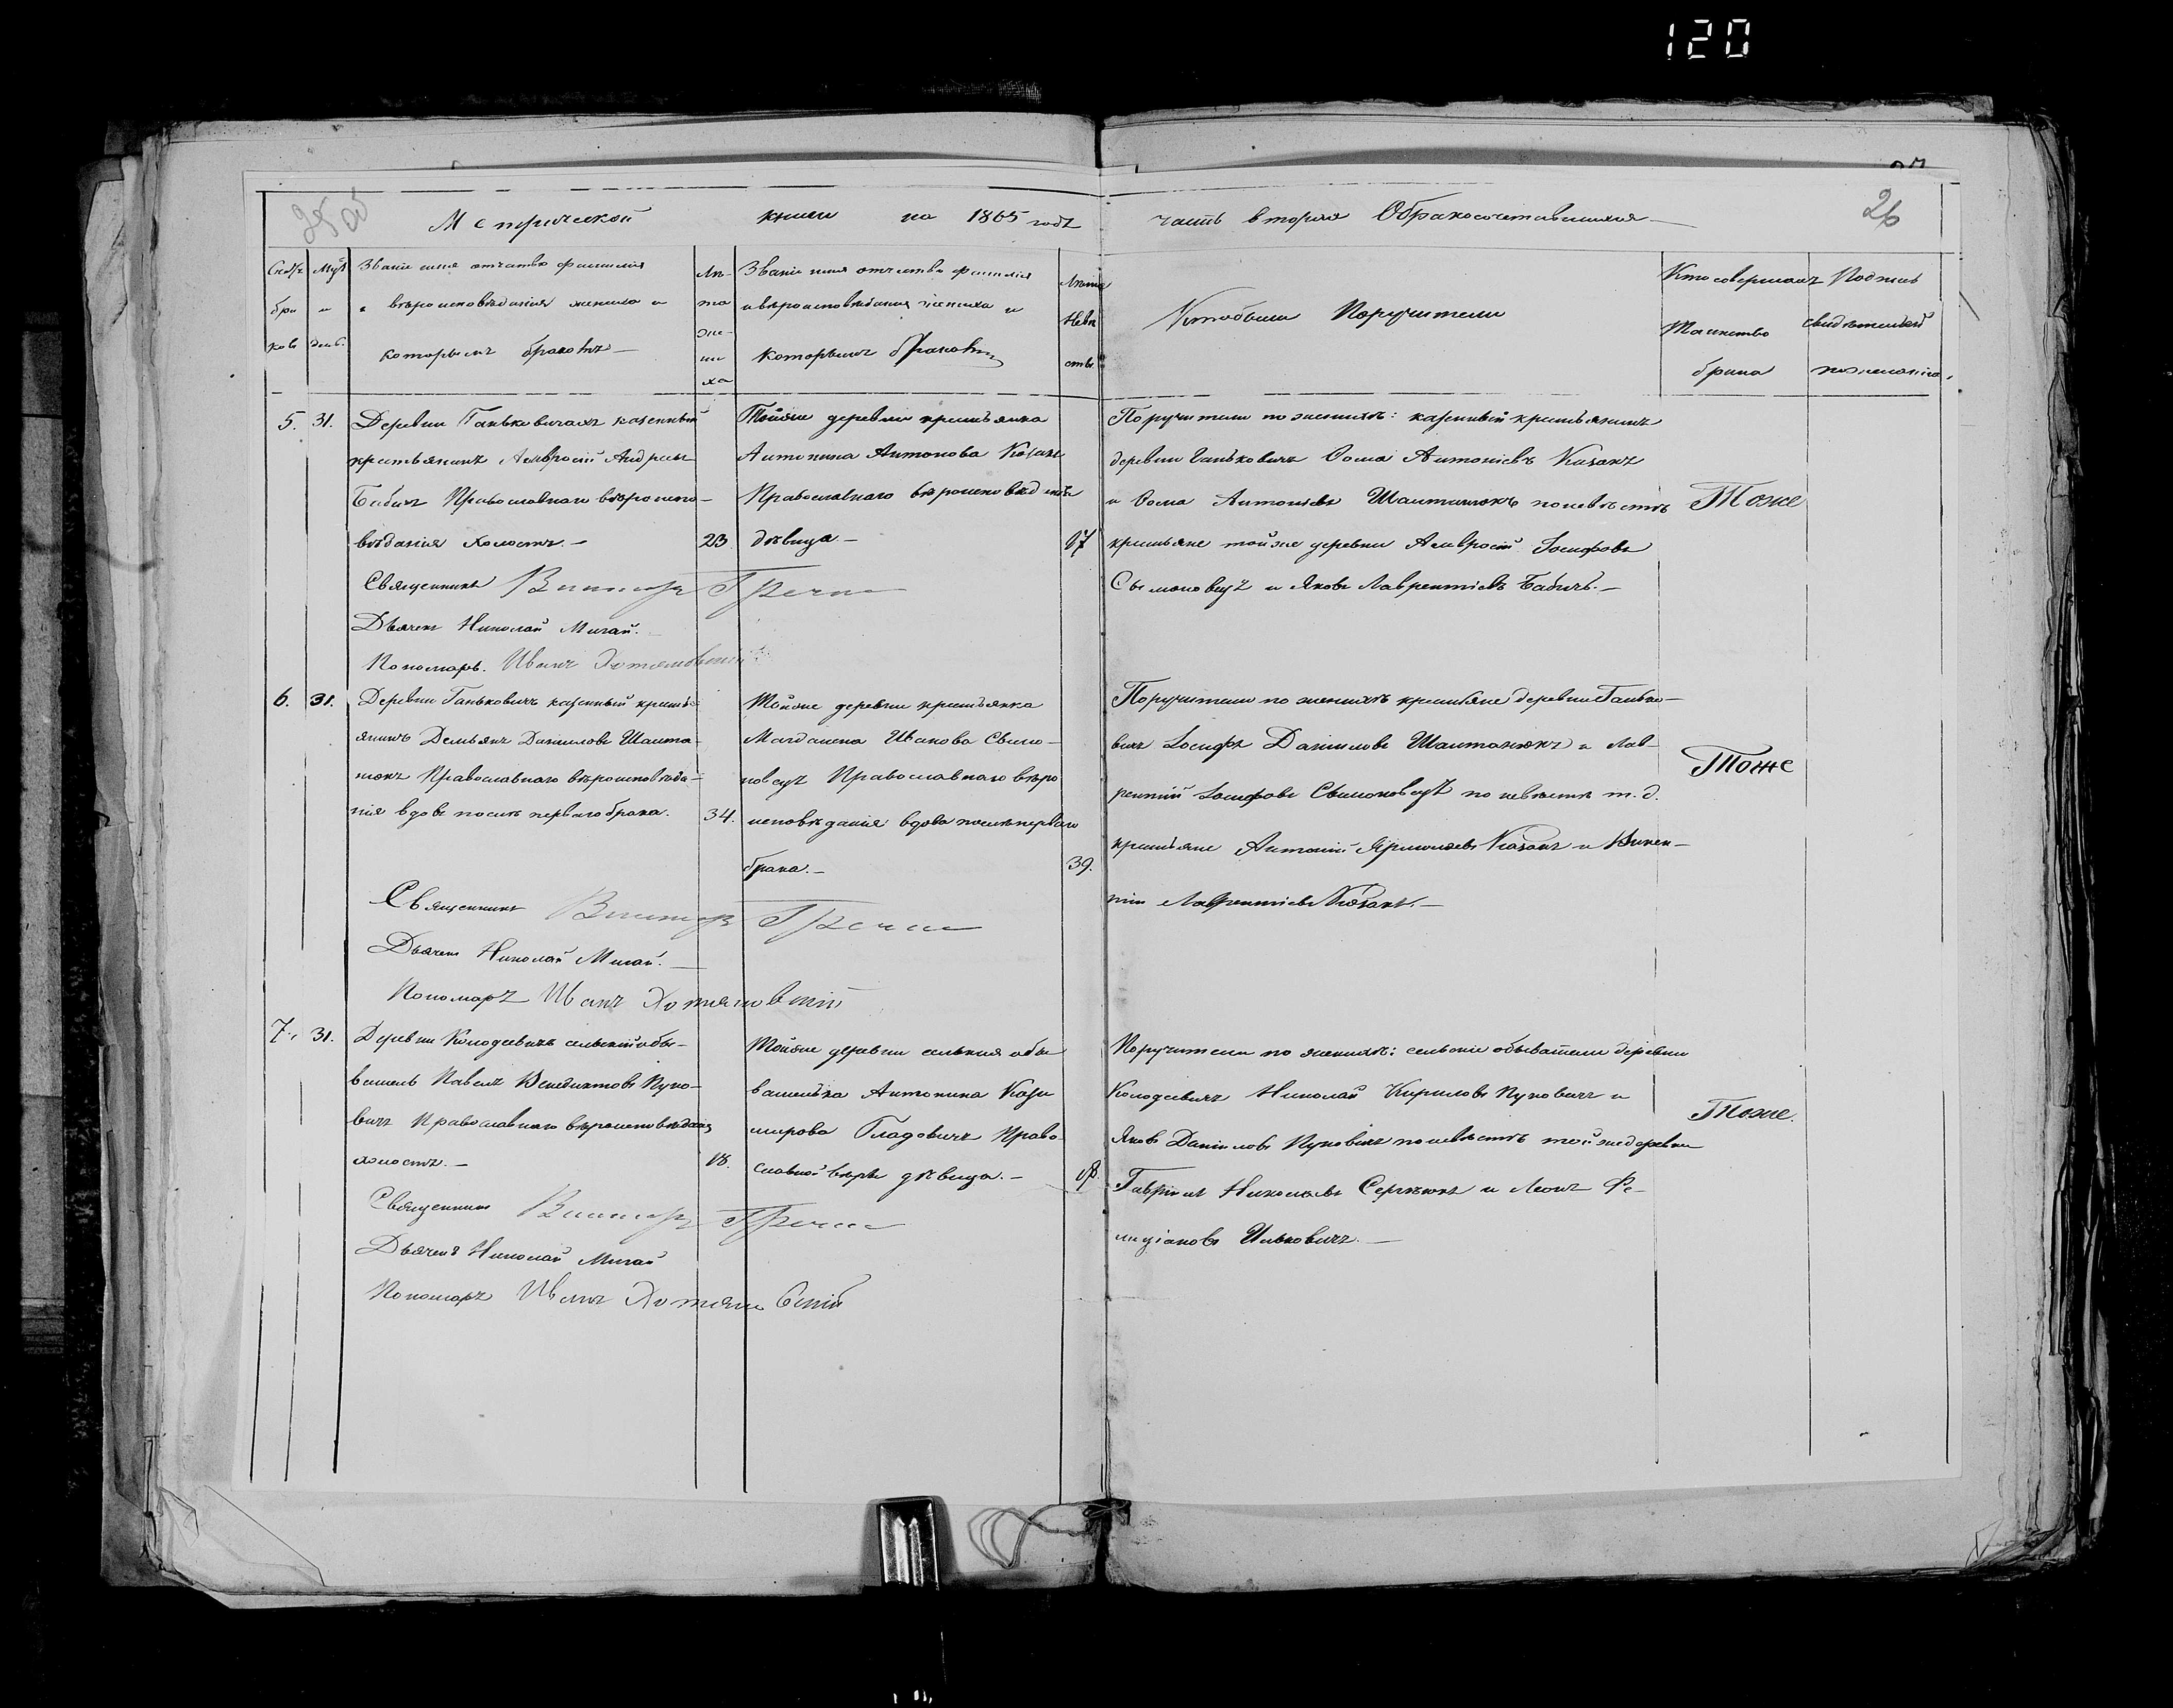 120
26
Метрической книги на 1865 годъ часть вторая О бракосочетавшихся
Счетъ браковъ
Мѣс. и день
Званіе имя отчество фамилія
и вѣроисповѣданія жениха и
которымъ бракомъ
Лѣта жениха
Званіе имя отчество фамилія
и вѣроисповѣданія жениха и
которымъ бракомъ
Лѣта невѣсты
Кто были Поручители
Кто совершалъ
Таинство
брака
Подпись
свидѣтелей
по желанію
5. 31.
Деревни Ганьковичахъ казенный
крестьянинъ Амвросій Андреевъ
Бабичъ Православнаго вѣроиспо-
вѣданія холостъ.
23
Тойже деревни крестьянка
Антонина Антонова Козакъ
Православнаго вѣроисповѣданія
дѣвица
17
Поручители по женихѣ: казенный крестьянинъ
деревни Ганьковичъ Ѳома Антоніевъ Казакъ
и Ѳома Антоніевъ Шантанюкъ по невѣстѣ
крестьяне тойже деревни Амвросій Іосифовъ
Сымоновецъ и Яковъ Лаврентіевъ Бабичъ.
Тоже
Священникъ Викторъ Гречи
Дьячекъ Николай Мигай.
Пономарь Иванъ Хотяновскій
6. 31.
Деревни Ганьковичъ казенный кресть-
янинъ Демьянъ Даниловъ Шанта-
нюкъ Православнаго вѣроисповѣда-
нія вдовъ послѣ перваго брака.
34.
Тойже деревни крестьянка
Магдалена Иванова Сымо-
новецъ Православнаго вѣро
исповѣданія вдова послѣ перваго
брака.
39.
Поручители по женихѣ крестьяне деревни Ганько-
вичъ Іосифъ Даниловъ Шантанюкъ и Лав-
рентій Іосифовъ Сымоновецъ по невѣстѣ т.д.
крестьяне Антоній Ярмолаевъ Казакъ и Викен-
тій Лаврентіевъ Казакъ.
Тоже
Священникъ Викторъ Гречи
Дьячекъ Николай Мигай.
Пономарь Иванъ Хотяновскій
7. 31.
Деревни Колодеевичъ сельскій обы-
ватель Павелъ Венедиктовъ Пуко-
вичъ Православнаго вѣроисповѣданія
холостъ.
18.
Тойже деревни сельская обы
вателька Антонина Кази
мирова Гладовичъ Право
славной вѣры дѣвица.
18
Поручители по женихѣ: сельскіе обыватели деревни
Колодеевичъ Николай Кириловъ Пуковичъ и
Яковъ Даниловъ Пуковичъ по невѣстѣ тойже деревни
Гавріилъ Николаевъ Сергѣюкъ и Леонъ Фе-
лиціановъ Ильковичъ.
Тоже.
Священникъ Викторъ Гречи
Дьячекъ Николай Мигай
Пономарь Иванъ Хотяновскій